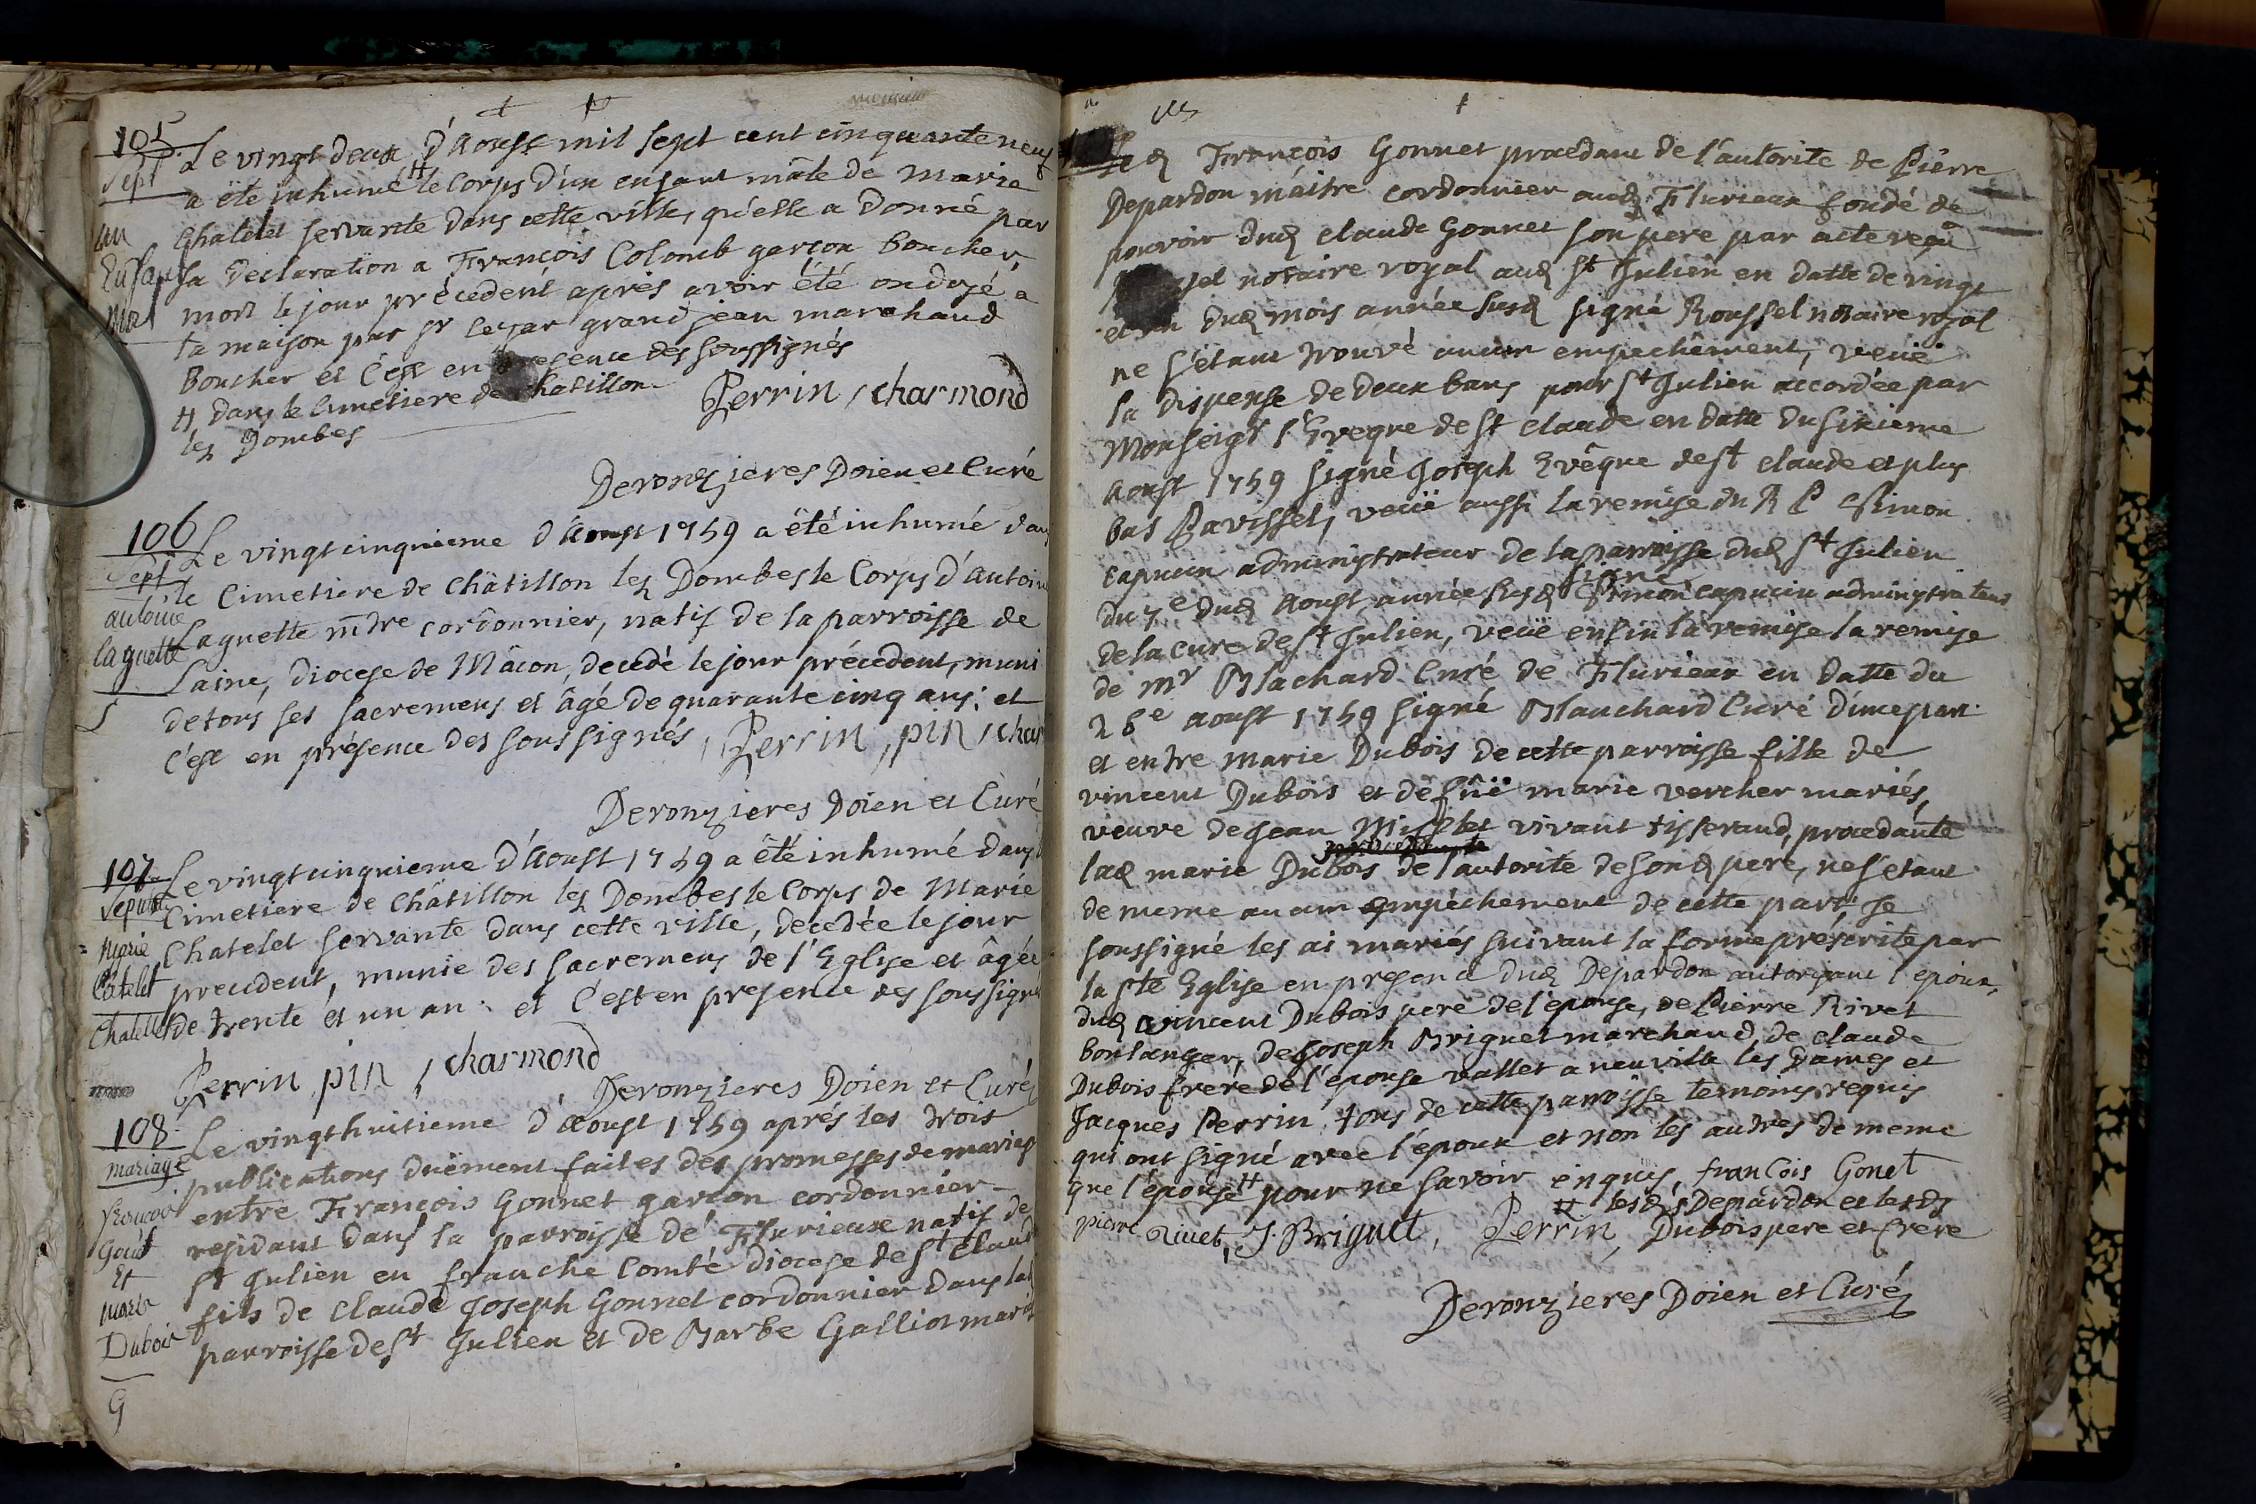 105
Sept
un
Enfant
Mal
Le vingt deux d'Aoust mil sept cent cinquante neuf
a été inhumé # le Corps d'un enfant mâle de Marie
Chatelet servante dans cette ville, qu'elle a donné par
sa déclaration a François Colomb garçon boucher,
mort le jour précedent aprés avoir été ondoyé a
la maison par sr grand jean marchand
Boucher et c'est en presence des soussignés
# dans le Cimetiere de Chatillon
les Dombes
Perrin, charmond
Deronzieres Doien et Curé
106
Sept
antoine
laguette
Le vingt cinquieme d'Aoust 1759 a été inhumé dans
le Cimetiere de Châtillon les Dombes le Corps d'Antoine
Laguette mdre cordonnier, natif de la parroisse de
Laine, diocese de Mâcon, decedé le jour précedent, muni
de tous ses sacremens et âgé de quarante cinq ans; et
c'est en présence des soussignés, Perrin, pin, char
Deronzieres Doien et Curé
107
Sepult
Marie
Catelet
Chatelet
Le vingt cinquieme d'Aoust 1759 a été inhumé dans le
Cimetiere de Châtillon les Dombes le Corps de Marie
Chatelet servante dans cette ville, decedée le jour
precedent, munie des sacremens de l'Eglise et âgée
de trente et un an: et c'est en presence des soussignés
Perrin, pin, charmond
Deronzieres Doien et Curé
108
mariage
françois
Gonet
Et
marie
Dubois
G
Le vingt huitieme d'Aoust 1759 aprés les trois
publications duëment faites des promesses de mariage
entre François Gonnet garçon cordonnier
residant dans la parroisse de Flurieux natif de
St Julien en franche Comté diocese de St Claude
fils de Claude Joseph Gonnet cordonnier dans lad
parroisse de St Julien et de Barbe Galliot mariés
led François Gonnet procedant de l'autorite de Piêrre
Depardon maitre cordonnier aud Flurieux fondé de
pouvoir dud claude Gonnet son pere par acte reçu
notaire royal aud St Julien en datte de vingt
et un dud mois année susd signé Roussel notaire royal
ne s'étant trouvé aucun empechêment, veüe
la dispense de deux bans pour St Julien accordée par
Monseigr l'Evêque de St claude en datte du sixieme
Aoust 1759 signé Joseph Evêque de St claude et plus
bas Bavissel, veüe aussi la remise du R P Simon
capucin administrateur de la parroisse dud St Julien
du 7e dud Aoust année susd signé Simon capucin administrateur
de la cure de St Julien, veüe enfin la remise la remise
de mr Blachard Curé de Flurieux en datte du
26e aoust 1759 signé Blanchard Curé d'une part
et entre marie Dubois de cette parroisse fille de
vincent Dubois et de fûë marie vercher mariés,
veuve de jean vivant tisserand, procedante
lad marie Dubois de l'autorité de sond pere, ne s'etant
de meme aucun empêchement de cette part je
soussigné les ai mariés suivant la forme préscrite par
la ste Eglise en presence dud Depardon autorisant l'epoux,
dud vincent Dubois pere de l'epouse, de Pierre Rivet
boulanger, de Joseph Briguet marchand, de claude
Dubois frere de l'épouse vallet a neuville les Dames et
Jacques Perrin tous de cette parroisse temoins requis
qui ont signé avec l'epoux et non les autres de meme
que l'épouse # pour ne savoir enquis, françois Gonet
# lesdts Depardon et lesdts
Dubois pere et frere
pierre Rivet, J. Briguet, Perrin
Deronzieres Doien et Curé